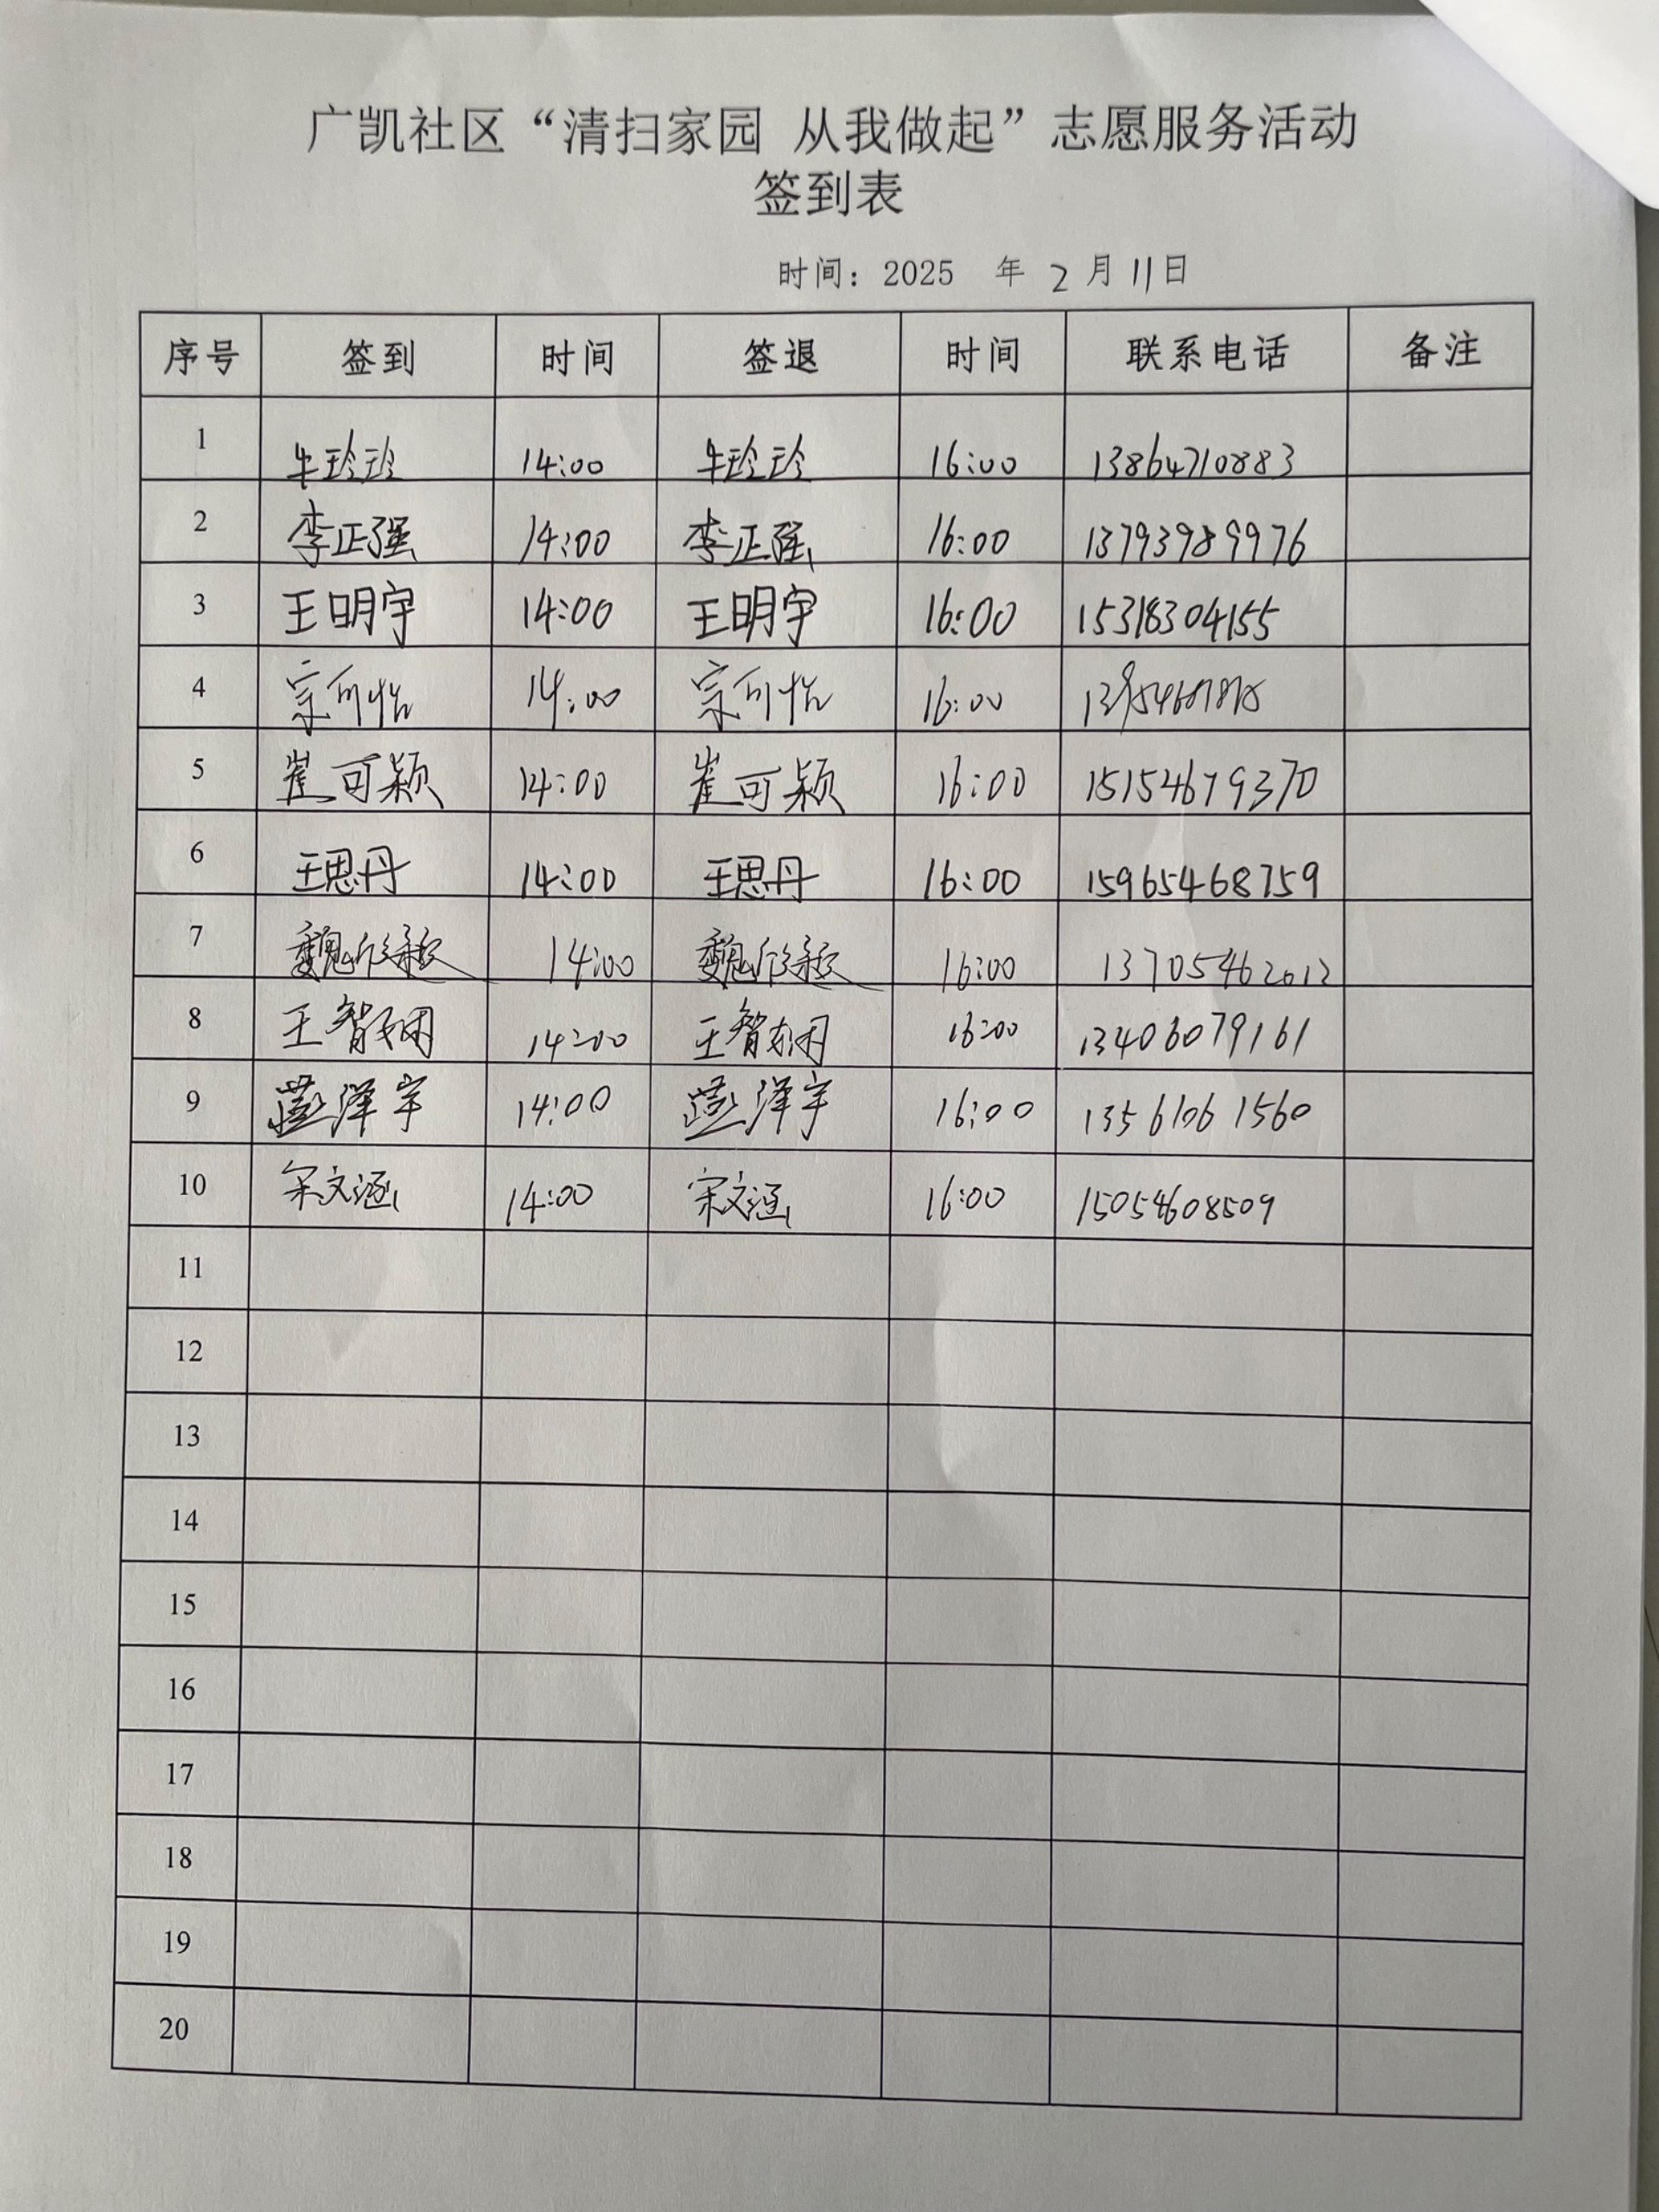 广凯社区“清扫家园 从我做起”志愿服务活动
签到表
时间：2025 年 2 月 11日
序号 签到 时间 签退 时间 联系电话 备注
1 牛玲玲 14:00 牛玲玲 16:00 13864710883
2 李正强 14:00 李正强 16:00 13793989976
3 王明宇 14:00 王明宇 16:00 15318304155
4 宗可怡 14:00 宗可怡 16:00
5 崔可颖 14:00 崔可颖 16:00 15154679370
6 王思丹 14:00 王思丹 16:00 15965468759
7 14:00 16:00 13705462012
8 王智娴 14:00 王智娴 16:00 13406079161
9 14:00 16:00 13561061560
10 宋文涵 14:00 宋文涵 16:00 15054608509
11
12
13
14
15
16
17
18
19
20